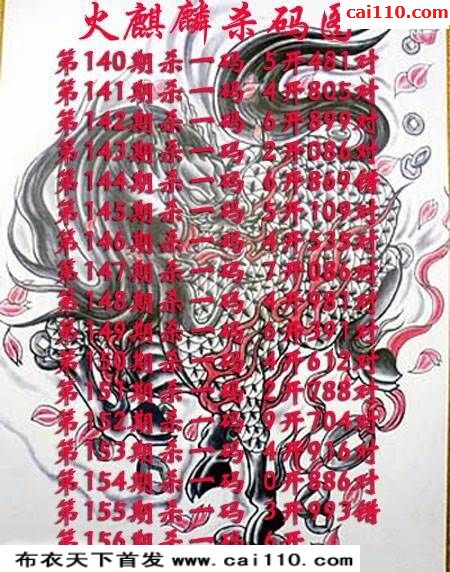 cai110.com
火麒麟杀码图
第140期杀一码 5开481对
第141期杀一码 4开805对
第142期杀一码 6开899对
第143期杀一码 2开086对
第144期杀一码 6开869错
第145期杀一码 5开109对
第146期杀一码 4开535对
第147期杀一码 7开086对
第148期杀一码 4开981对
第149期杀一码 6开391对
第150期杀一码 4开612对
第151期杀一码 2开788对
第152期杀一码 9开704对
第153期杀一码 4开916对
第154期杀一码 0开886对
第155期杀一码 3开993错
第156期杀一码 6开
布衣天下首发 www.cai110.com